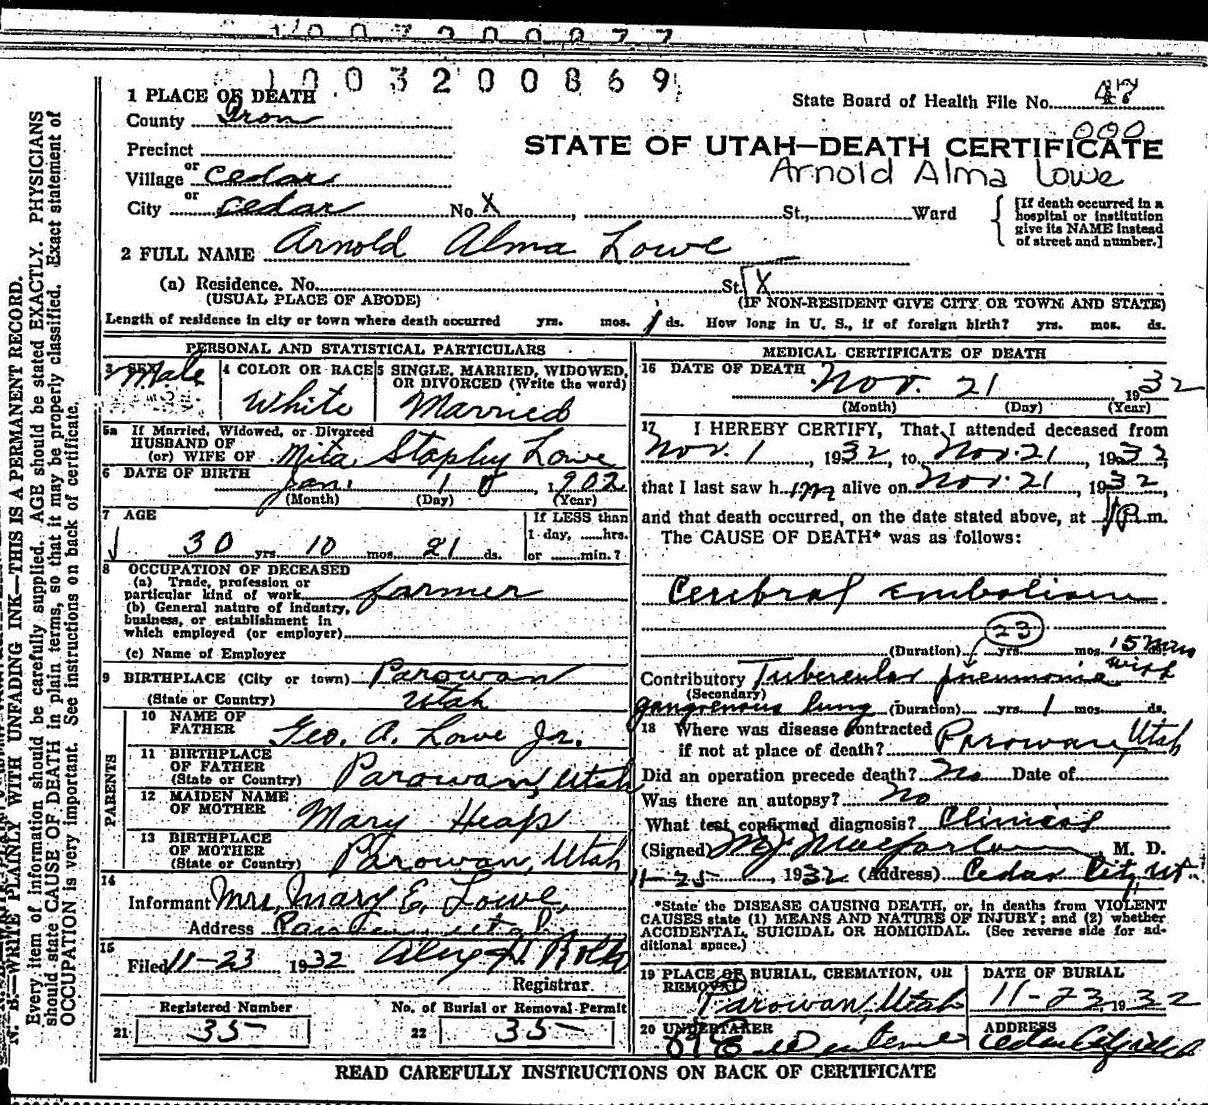 1003200869
1 PLACE OF DEATH
County Iron
State Board of Health File No. 47
000
Precinct
STATE OF UTAH—DEATH CERTIFICATE
Arnold Alma Lowe
Village or Cedar
City or Cedar No. X , St., Ward
[If death occurred in a hospital or institution give its NAME instead of street and number.]
2 FULL NAME Arnold Alma Lowe
(a) Residence. No. St. X
(USUAL PLACE OF ABODE) (IF NON-RESIDENT GIVE CITY OR TOWN AND STATE)
Length of residence in city or town where death occurred yrs. mos. 1 ds. How long in U. S., if of foreign birth? yrs. mos. ds.
PERSONAL AND STATISTICAL PARTICULARS
3 SEX Male
4 COLOR OR RACE White
5 SINGLE, MARRIED, WIDOWED, OR DIVORCED (Write the word) Married
5a If Married, Widowed, or Divorced
HUSBAND OF
(or) WIFE OF Mita Stapley Lowe
6 DATE OF BIRTH Jan. 10 1902
(Month) (Day) (Year)
7 AGE
30 yrs. 10 mos. 21 ds.
If LESS than
1 day, ......hrs.
or ......min.?
8 OCCUPATION OF DECEASED
(a) Trade, profession or
particular kind of work farmer
(b) General nature of industry,
business, or establishment in
which employed (or employer)
(c) Name of Employer
9 BIRTHPLACE (City or town) Parowan
(State or Country) Utah
PARENTS
10 NAME OF FATHER Geo. A. Lowe Jr.
11 BIRTHPLACE OF FATHER
(State or Country) Parowan, Utah
12 MAIDEN NAME OF MOTHER Mary Heap
13 BIRTHPLACE OF MOTHER
(State or Country) Parowan, Utah
14
Informant Mrs. Mary E. Lowe,
Address Utah
15
Filed 11-23 1932
Registrar.
Registered Number
21 35
No. of Burial or Removal Permit
22 35
MEDICAL CERTIFICATE OF DEATH
16 DATE OF DEATH Nov. 21 1932
(Month) (Day) (Year)
17 I HEREBY CERTIFY, That I attended deceased from
Nov. 1, 1932, to Nov. 21, 1932,
that I last saw him alive on Nov. 21, 1932,
and that death occurred, on the date stated above, at P.m.
The CAUSE OF DEATH* was as follows:
Cerebral embolism
23
(Duration) yrs. mos. 15 ds.
Contributory Tubercular pneumonia with
(Secondary)
gangrenous lung (Duration) yrs. 1 mos. ds.
18 Where was disease contracted
if not at place of death? Parowan, Utah
Did an operation precede death? No Date of
Was there an autopsy? No
What test confirmed diagnosis? Clinical
(Signed) Macfarlane, M. D.
1932 (Address) Cedar City Ut.
*State the DISEASE CAUSING DEATH, or, in deaths from VIOLENT
CAUSES state (1) MEANS AND NATURE OF INJURY; and (2) whether
ACCIDENTAL, SUICIDAL OR HOMICIDAL. (See reverse side for ad-
ditional space.)
19 PLACE OF BURIAL, CREMATION, OR REMOVAL
Parowan, Utah
DATE OF BURIAL
11-23, 1932
20 UNDERTAKER
ADDRESS
Cedar City
READ CAREFULLY INSTRUCTIONS ON BACK OF CERTIFICATE
N. B.—WRITE PLAINLY WITH UNFADING INK—THIS IS A PERMANENT RECORD.
Every item of information should be carefully supplied. AGE should be stated EXACTLY. PHYSICIANS
should state CAUSE OF DEATH in plain terms, so that it may be properly classified. Exact statement of
OCCUPATION is very important. See instructions on back of certificate.